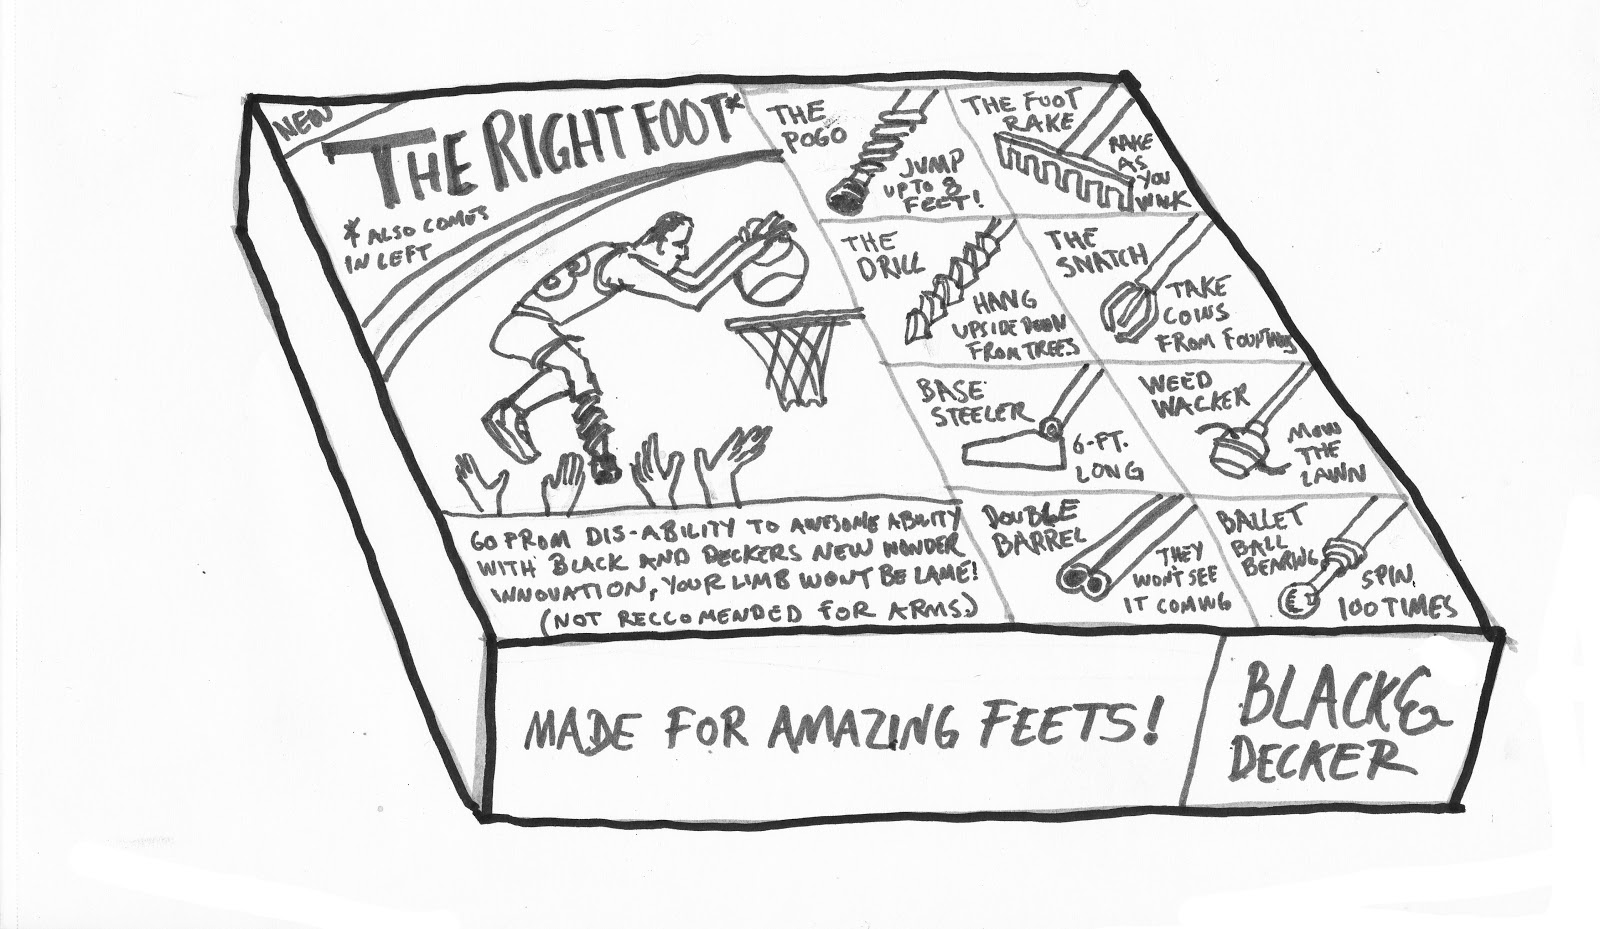 NEW
THE RIGHT FOOT*
* ALSO COMES
IN LEFT
THE
POGO
JUMP
UP TO 8
FEET!
THE FOOT
RAKE
RAKE
AS
YOU
WALK
THE
DRILL
HANG
UPSIDE DOWN
FROM TREES
THE
SNATCH
TAKE
COINS
FROM FOUNTAINS
BASE
STEELER
6-FT.
LONG
WEED
WACKER
MOW
THE
LAWN
DOUBLE
BARREL
THEY
WON'T SEE
IT COMING
BALLET
BALL
BEARING
SPIN
100 TIMES
GO FROM DIS-ABILITY TO AWESOME ABILITY
WITH BLACK AND DECKERS NEW WONDER
INNOVATION, YOUR LIMB WONT BE LAME!
(NOT RECCOMENDED FOR ARMS)
MADE FOR AMAZING FEETS!
BLACK &
DECKER